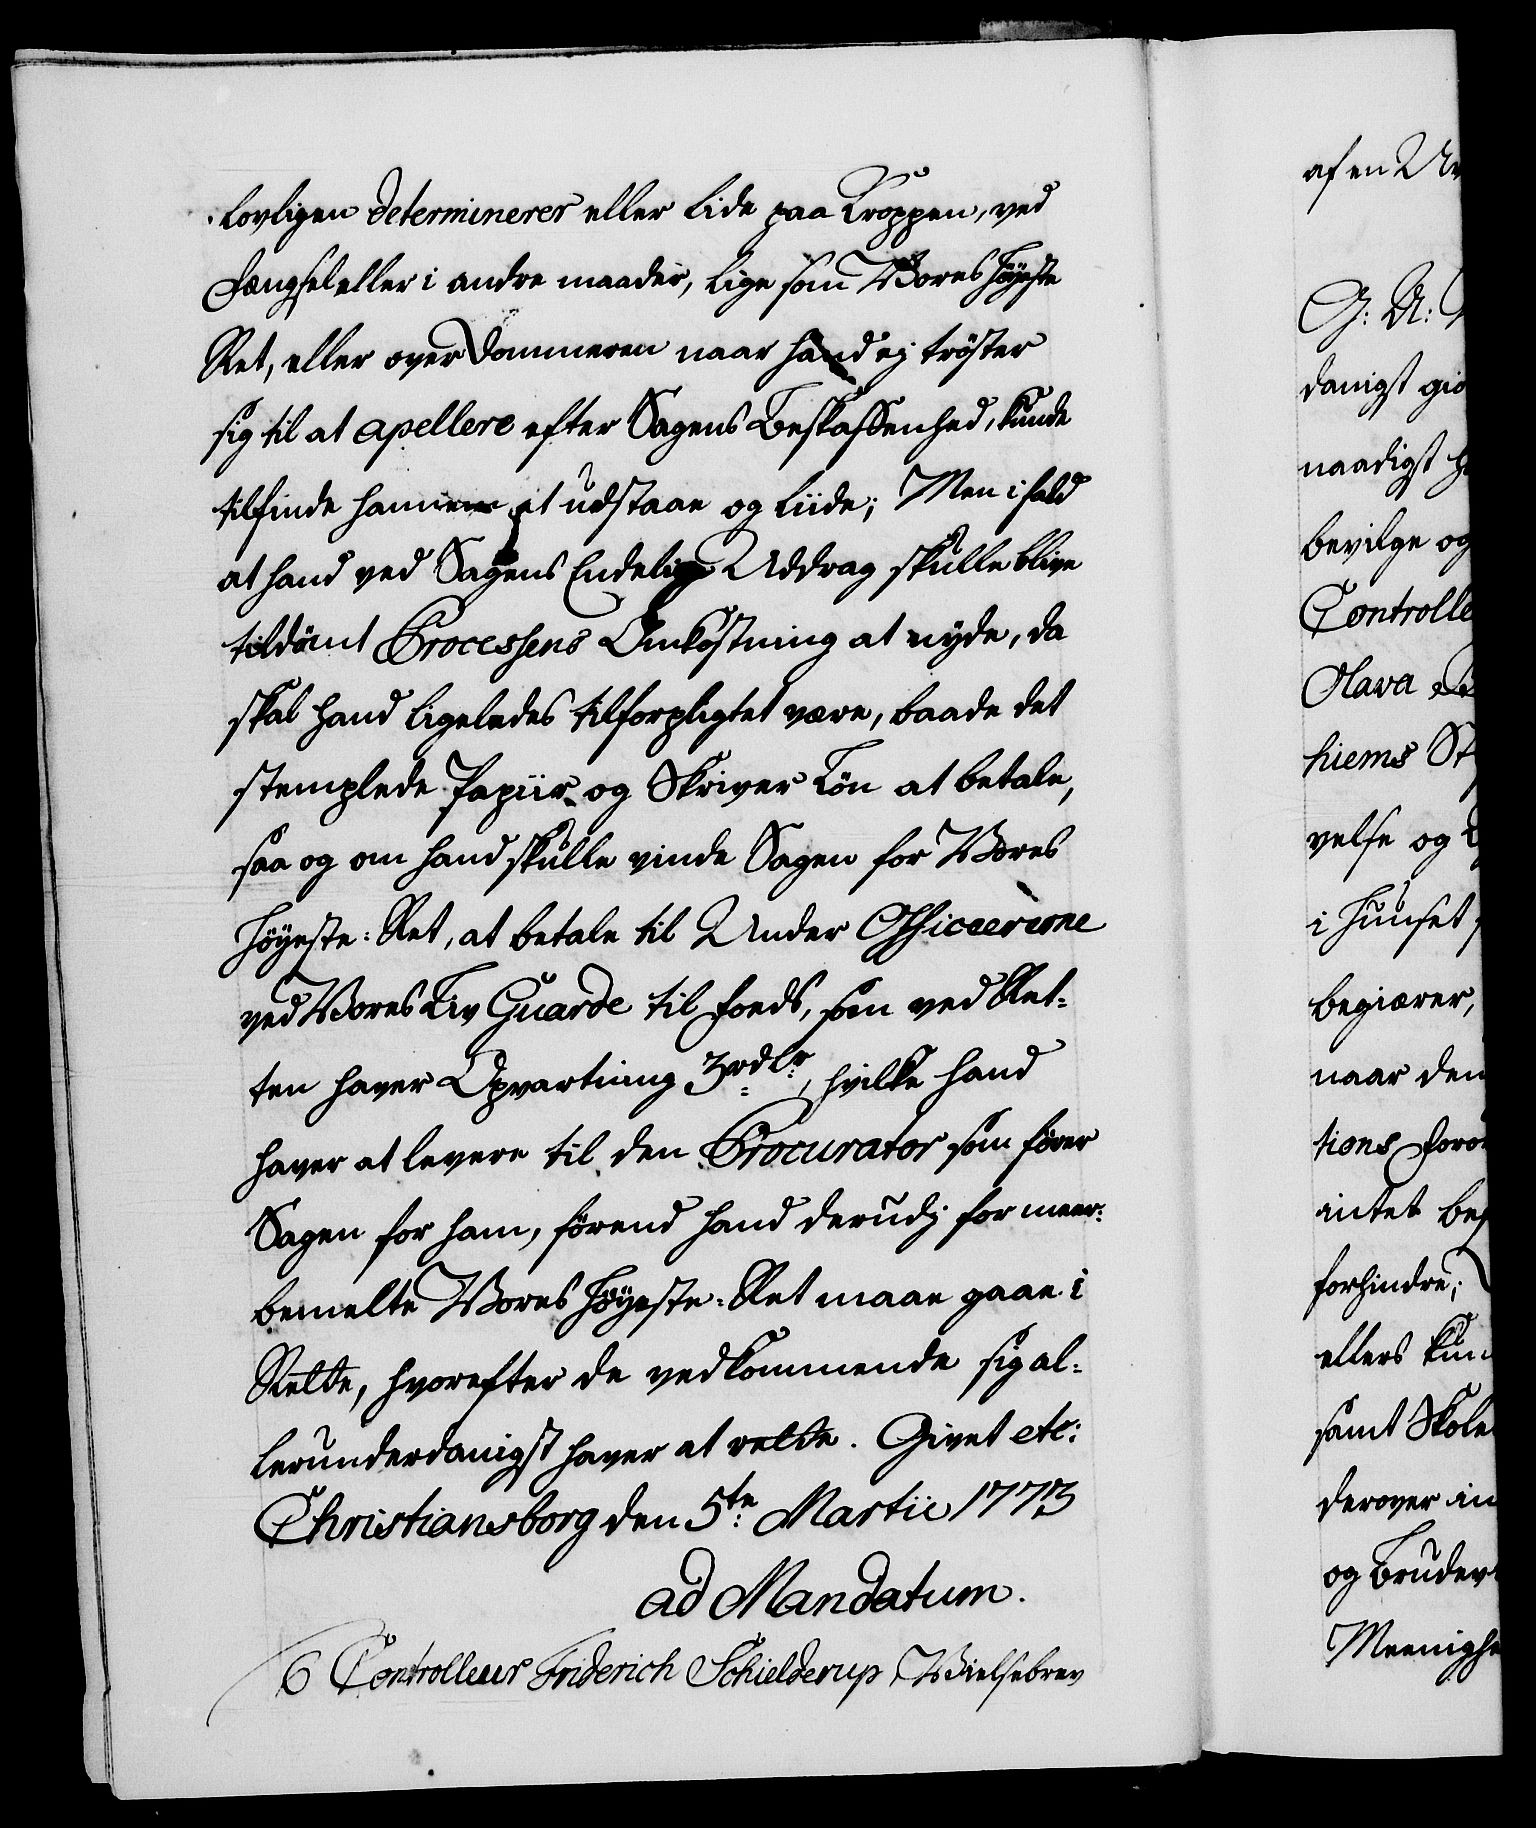 lovligen determinerer eller lide paa Kroppen, ved
Fængsel eller i andre maader, lige som Vores Høyeste
Ret, eller over Dommeren naar hand ej trøster
sig til at apellere efter Sagens Beskaffenhed, kunde
tilfinde hannem at udstaae og liide; Men i fald
at hand ved Sagens Endelig Uddrag skulle blive
tildømt Processens Omkostning at nyde, da
skal hand ligeledes tilforpligtet være, baade det
stemplede Papiir og Skriver Løn at betale,
saa og om hand skulle vinde Sagen for Vores
Høyeste-Ret, at betale til Under Officererne
ved Vores Liv Guarde til Foeds, som ved Ret-
ten haver Opvartning 3 rdlr, hvilke hand
haver at levere til den Procurator som fører
Sagen for ham, førend hand derudj for meer-
bemelte Vores Høyeste-Ret maae gaae i
Rette, hvorefter de vedkommende sig al-
lerunderdanigst haver at rette. Givet etc:
Christiansborg den 5te Martii 1773
ad Mandatum.
6 Controlleur Friderich Schielderup Vielsebrev
af en
G: A:
danigst gio
naadigst
bevilge og
Controlle
Olava
hiems St
velse og
i Huuset
begiærer,
naar den
tions Foro
intet bes
forhindre;
ellers
samt Skole
derover in
og Brudev
Meenighe